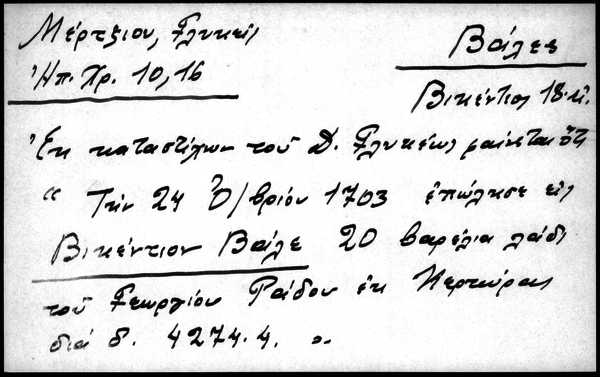 Μέρτζιου, Γλυκεῖς
Ἠπ. Χρ. 10, 16
Βάλες
Βικέντιος 18. αἰ.
Ἐκ καταστίχων τοῦ Δ. Γλυκέως φαίνεται ὅτι
“ Τὴν 24 Ὀ/βρίου 1703 ἐπώλησε εἰς
Βικέντιον Βάλε 20 βαρέλια λάδι
τοῦ Γεωργίου Ράδου ἐκ Κερκύρας
διά δ. 4274.4. „